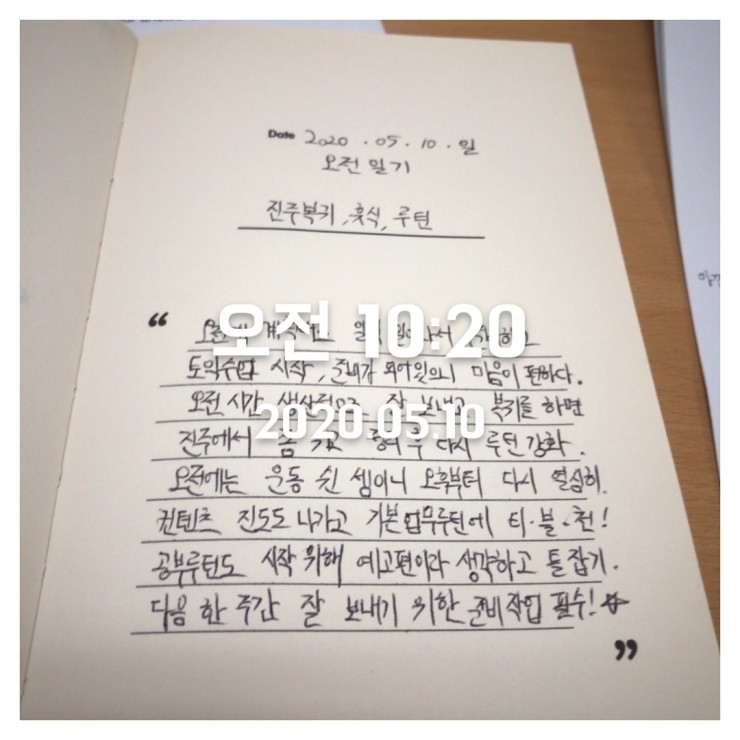 Date 2020 . 05 . 10 . 일
오전 일기
진주복귀, 휴식, 루턴
“
오전 10:20
토익수업 시작, 준비가 되어있으니 마음이 편하다.
오전 시간 생산적으로 잘 보내고 복귀를 하면
2020.05.10
진주에서 좀 후 다시 루턴 강화.
오전에는 운동 쉰 셈이니 오후부터 다시 열심히.
컨텐츠 진도도 나가고 기본업무루턴에 티·블·천!
공부루턴도 시작 위해 예고편이라 생각하고 틀잡기.
다음 한 주간 잘 보내기 위한 준비작업 필수!
”